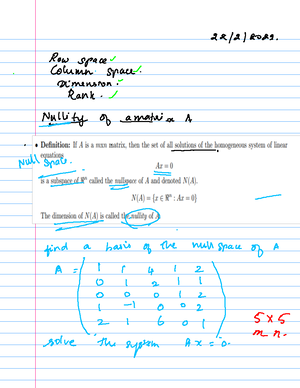 22/2/2022.
Row space ✓
Column space ✓.
Dimension ✓
Rank. ✓
Nullity of a matrix A
• Definition: If A is a mxn matrix, then the set of all solutions of the homogeneous system of linear
equations
Null Space.
Ax = 0
is a subspace of Rⁿ called the nullspace of A and denoted N(A).
N(A) = {x ∈ Rⁿ : Ax = 0}
The dimension of N(A) is called the nullity of A
find a basis of the null space of A
A = ( 1 1 4 1 2
0 1 2 1 1
0 0 0 1 2
1 -1 0 0 2
2 1 6 0 1 )
5 x 5
m n.
solve the system Ax = 0.